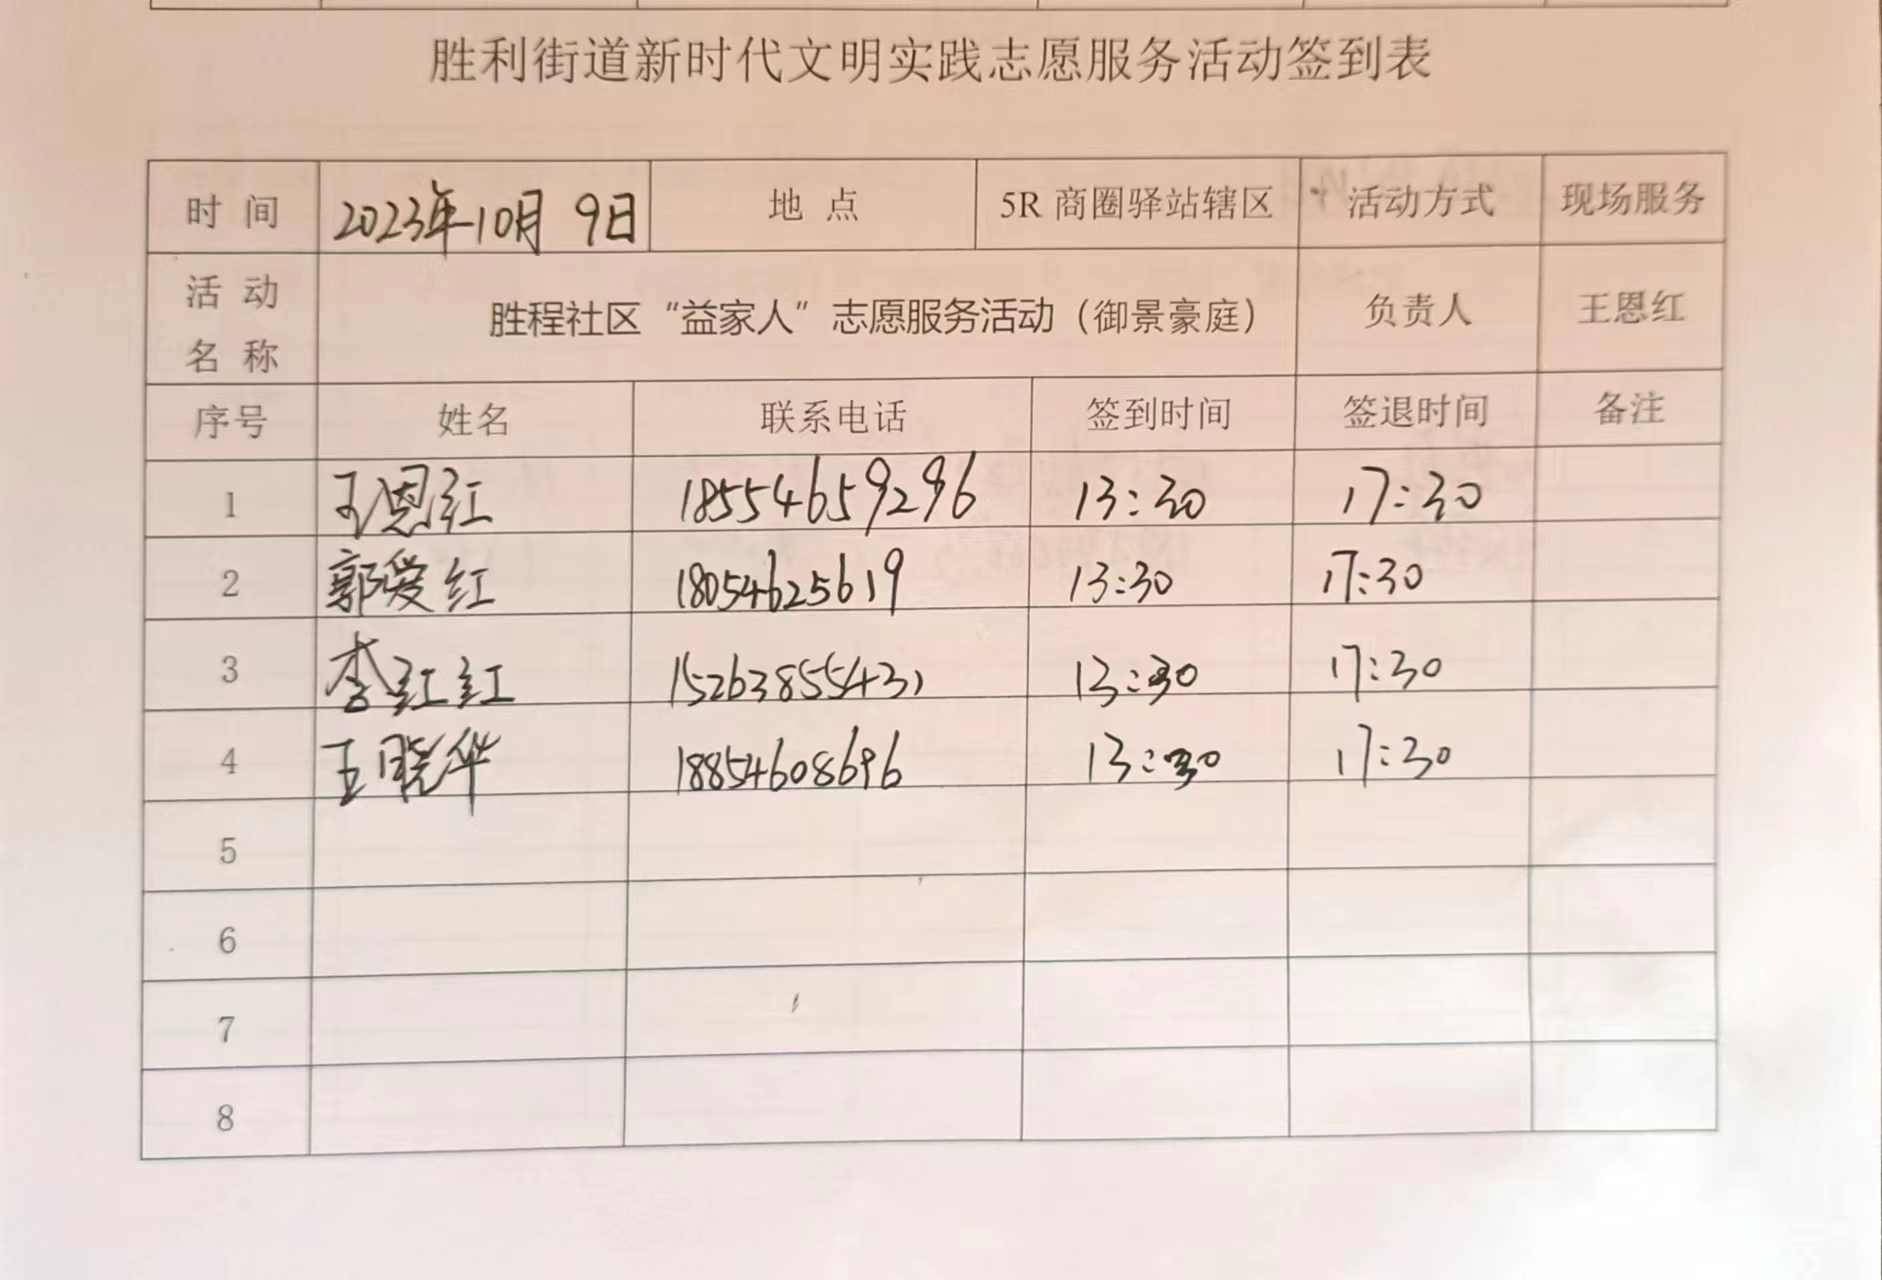 胜利街道新时代文明实践志愿服务活动签到表
时 间 2023年10月 9日 地 点 5R 商圈驿站辖区 活动方式 现场服务
活 动 名 称 胜程社区“益家人”志愿服务活动（御景豪庭） 负责人 王恩红
序号 姓名 联系电话 签到时间 签退时间 备注
1 王恩红 18554659296 13:30 17:30
2 郭爱红 18054625619 13:30 17:30
3 李红红 15263855431 13:30 17:30
4 王晓华 18854608696 13:30 17:30
5
6
7
8